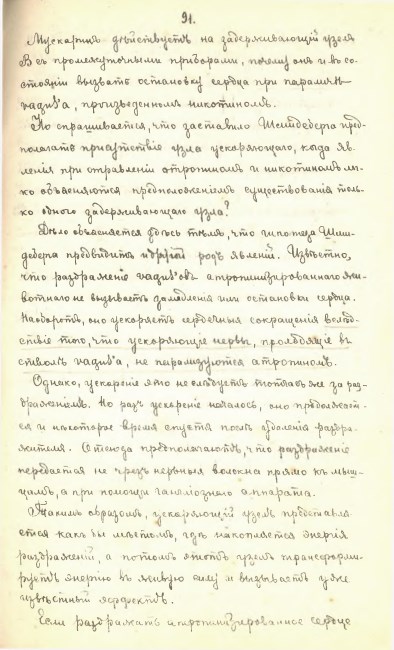 91.
Мускаринъ дѣйствуетъ на задерживающій узелъ
В съ промежуточными приборами, почему онъ и въ со-
стояніи вызвать остановку сердца при параличѣ
vagus'a, произведенномъ никотиномъ.
Но спрашивается, что заставило Шмидеберга пред-
полагать присутствіе узла ускоряющаго, когда яв-
ленія при отравленіи атропиномъ и никотиномъ лег-
ко объясняются предположеніемъ существованія толь-
ко одного задерживающаго узла?
Дѣло объясняется здѣсь тѣмъ, что гипотеза Шми-
деберга предвидитъ и другой родъ явленій. Извѣстно,
что раздраженіе vagus'овъ атропинизированнаго жи-
вотнаго не вызываетъ замедленія или остановки сердца.
Наоборотъ, оно ускоряетъ сердечныя сокращенія вслѣд-
ствіе того, что ускоряющіе нервы, проходящіе въ
стволѣ vagus'a, не парализуются атропиномъ.
Однако, ускореніе это не слѣдуетъ тотчасъ же за раз-
драженіемъ. Но разъ ускореніе началось, оно продолжает-
ся и некоторое время спустя послѣ удаленія раздра-
жителя. Отсюда предполагаютъ, что раздраженіе
передается не чрезъ нервныя волокна прямо къ мыш-
цамъ, а при помощи ганглiознаго аппарата.
Такимъ образомъ, ускоряющій узелъ представля-
ется какъ бы мѣстомъ, гдѣ накопляется энергія
раздраженій, а потомъ этотъ узелъ трансформи-
руетъ энергію въ живую силу и вызываетъ уже
извѣстный эффектъ.
Если раздражать атропинизированное сердце